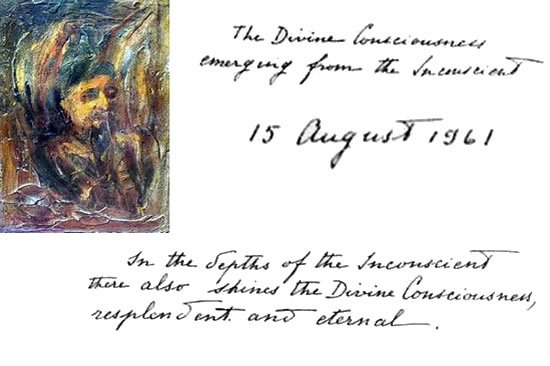 The Divine Consciousness
emerging from the Inconscient
15 August 1961
In the depths of the Inconscient
there also shines the Divine Consciousness,
resplendent and eternal.